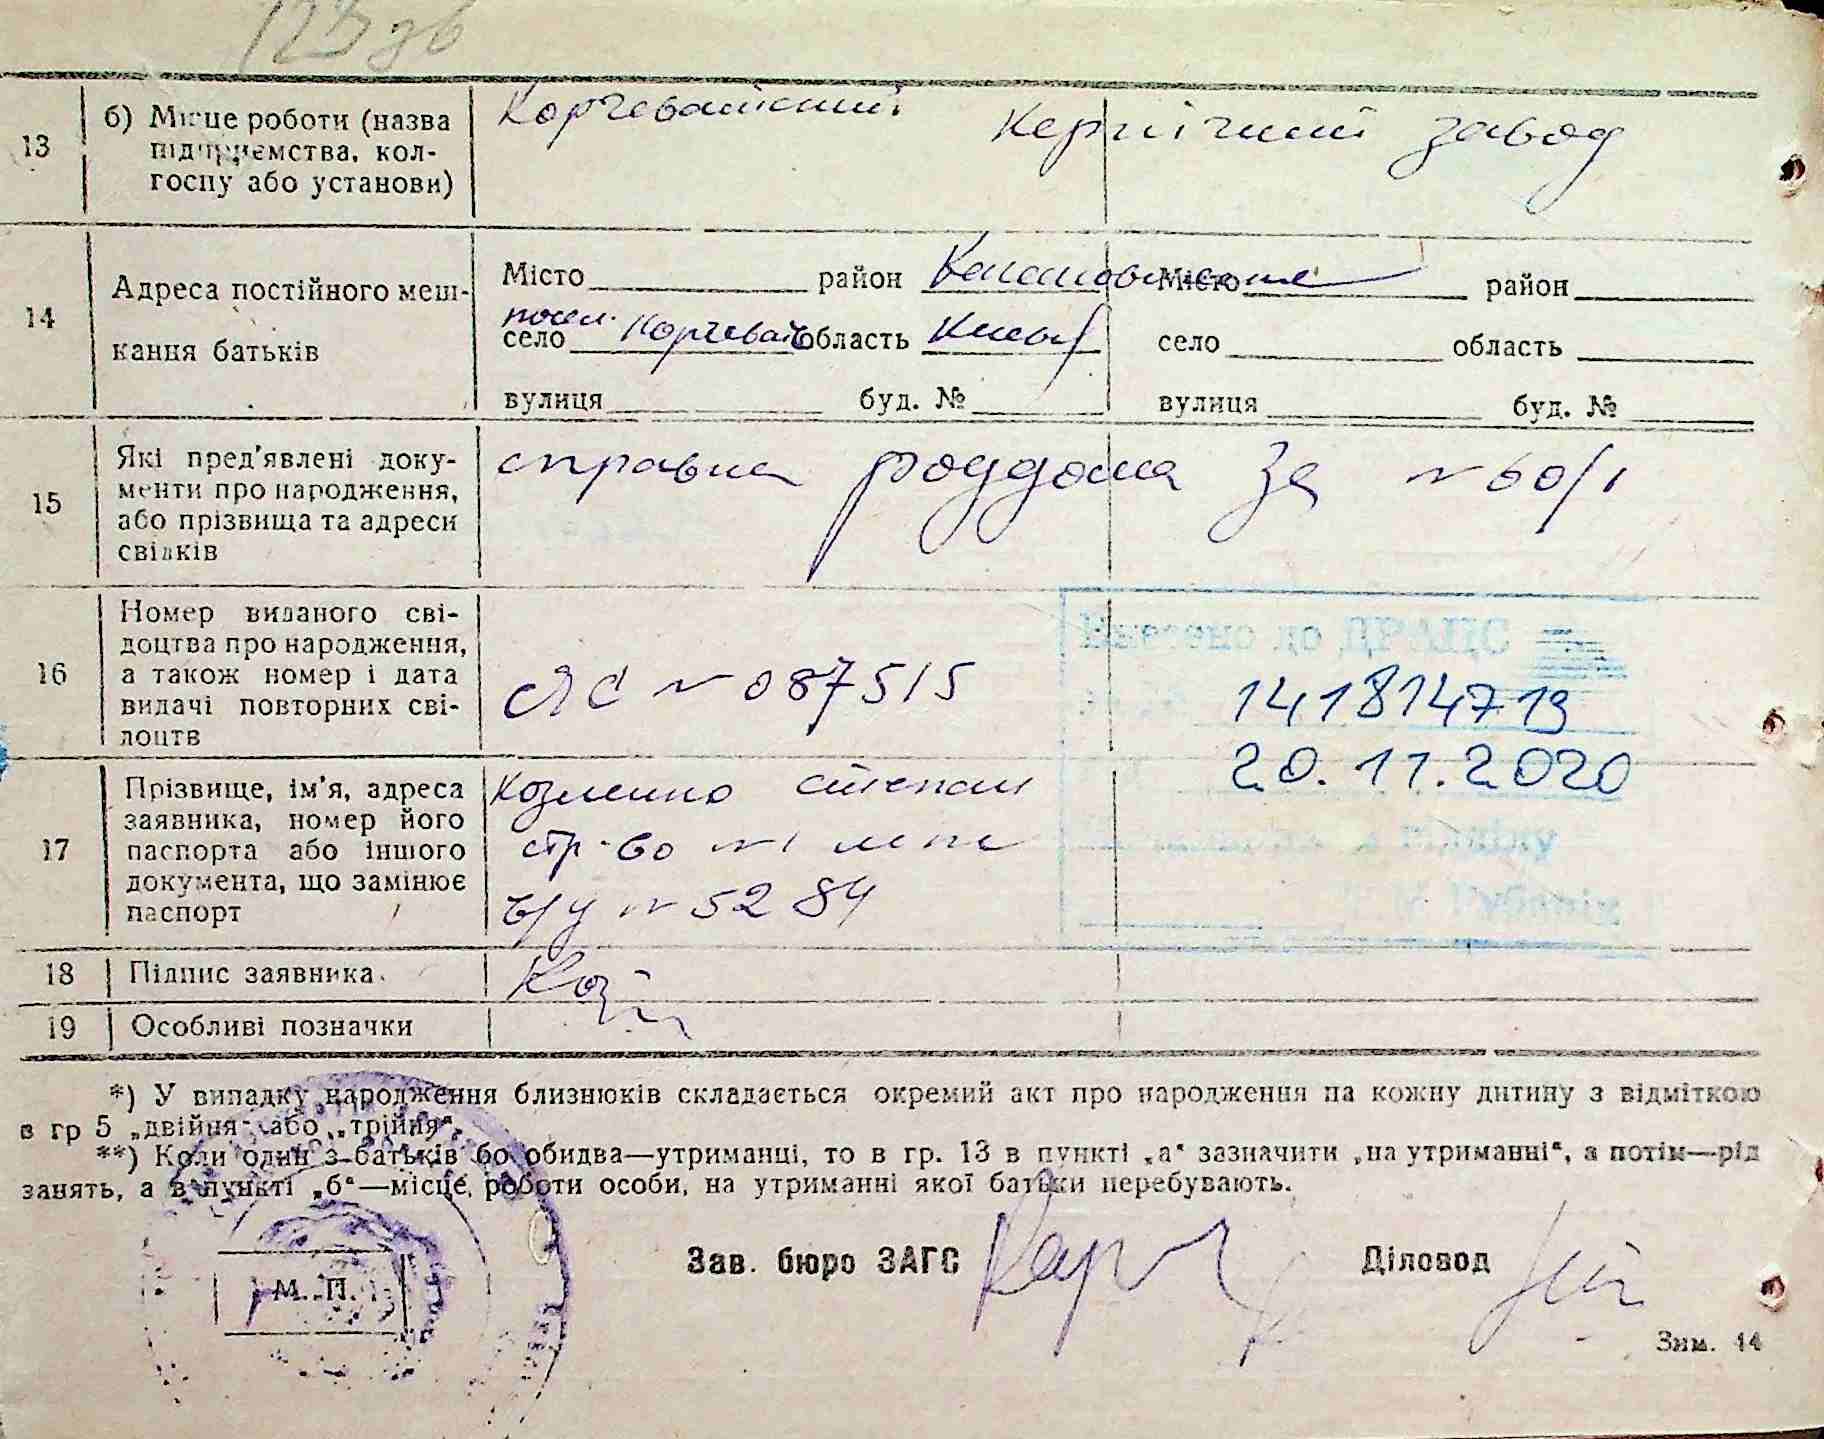 13
б) Місце роботи (назва підприємства, колгоспу або установи)
Корчеватський Керпічний завод
14
Адреса постійного мешкання батьків
Місто район Місто район
посел. село Корчеват область Києвс село область
вулиця буд. № вулиця буд. №
15
Які пред'явлені документи про народження, або прізвища та адреси свідків
справка роддома За № 60/1
16
Номер виданого свідоцтва про народження, а також номер і дата видачі повторних свідоцтв
ЯС № 087515
Внесено до ДРАЦС
1418147 19
20.11.2020
17
Прізвище, ім'я, адреса заявника, номер його паспорта або іншого документа, що замінює паспорт
Козленко Степан
стр-во №1
№ 5284
18
Підпис заявника.
Коз
19
Особливі позначки
*) У випадку народження близнюків складається окремий акт про народження на кожну дитину з відміткою
в гр 5 „двійня“ або „трійня“.
**) Коли один з батьків бо обидва—утриманці, то в гр. 13 в пункті „а“ зазначити „на утриманні“, а потім—рід
занять, а в пункті „б“—місце роботи особи, на утриманні якої батьки перебувають.
Зав. бюро ЗАГС Діловод
М. П.
Зим. 44